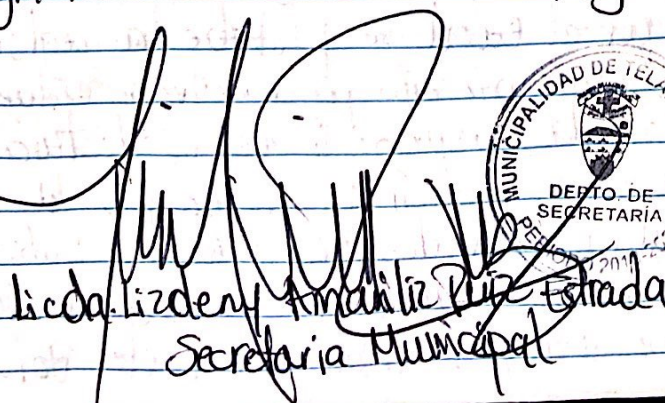 MUNICIPALIDAD DE TELA
DEPTO. DE
SECRETARÍA
Licda. Lizdeny Amariliz Ruiz Estrada
Secretaria Municipal